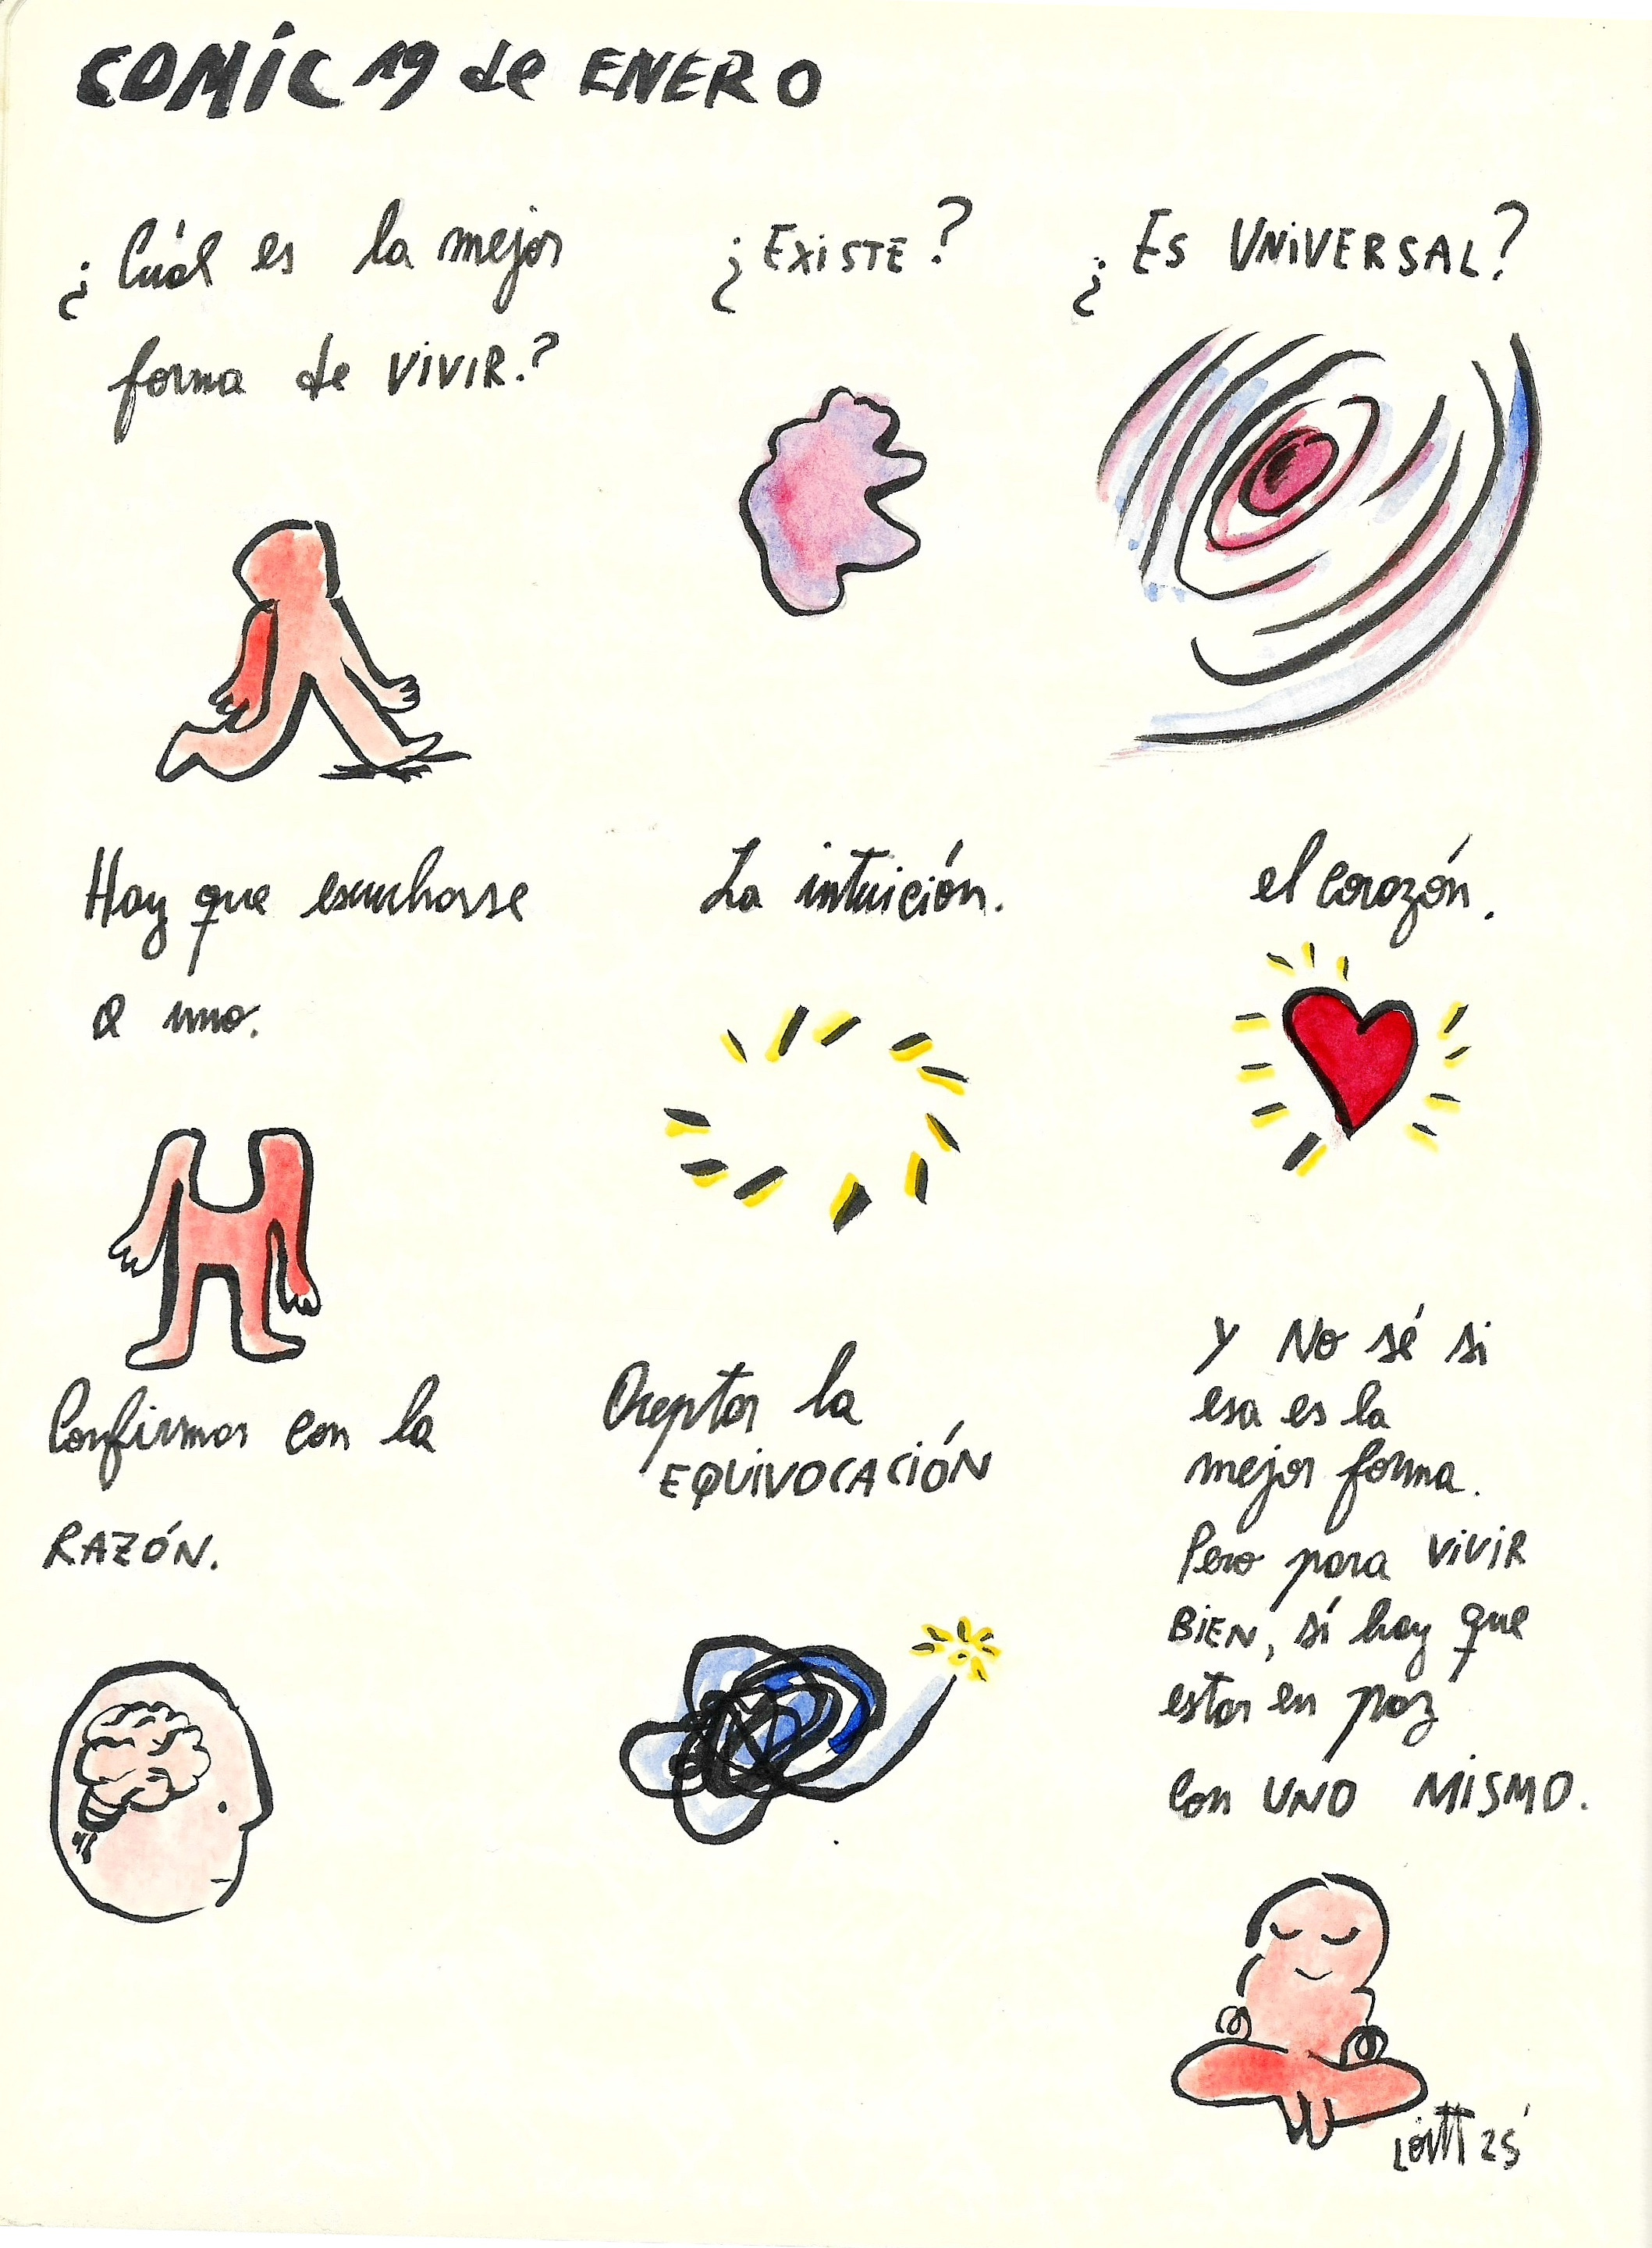 COMÍC 19 de ENERO
¿Cuál es la mejor
forma de ViViR.?
¿EXiSTE?
¿ES UNiVERSAL?
Hay que escucharse
a uno.
La intuición.
el corazón.
Confirmar con la
RAZÓN.
Aceptar la
EQUiVOCACiÓN
Y No sé si
esa es la
mejor forma.
Pero para ViViR
BiEN, sí hay que
estar en paz
con UNO MiSMO.
25'